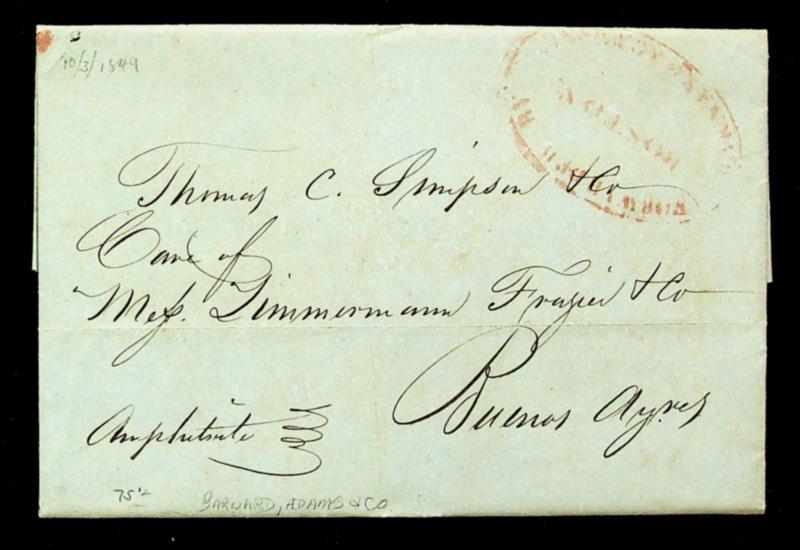 10/3/1849
Thomas C. Simpson & Co
Care of
Mess. Zimmermann Frazier & Co
Buenos Ayres
Amphitrite
75
BARNARD, ADAMS & CO